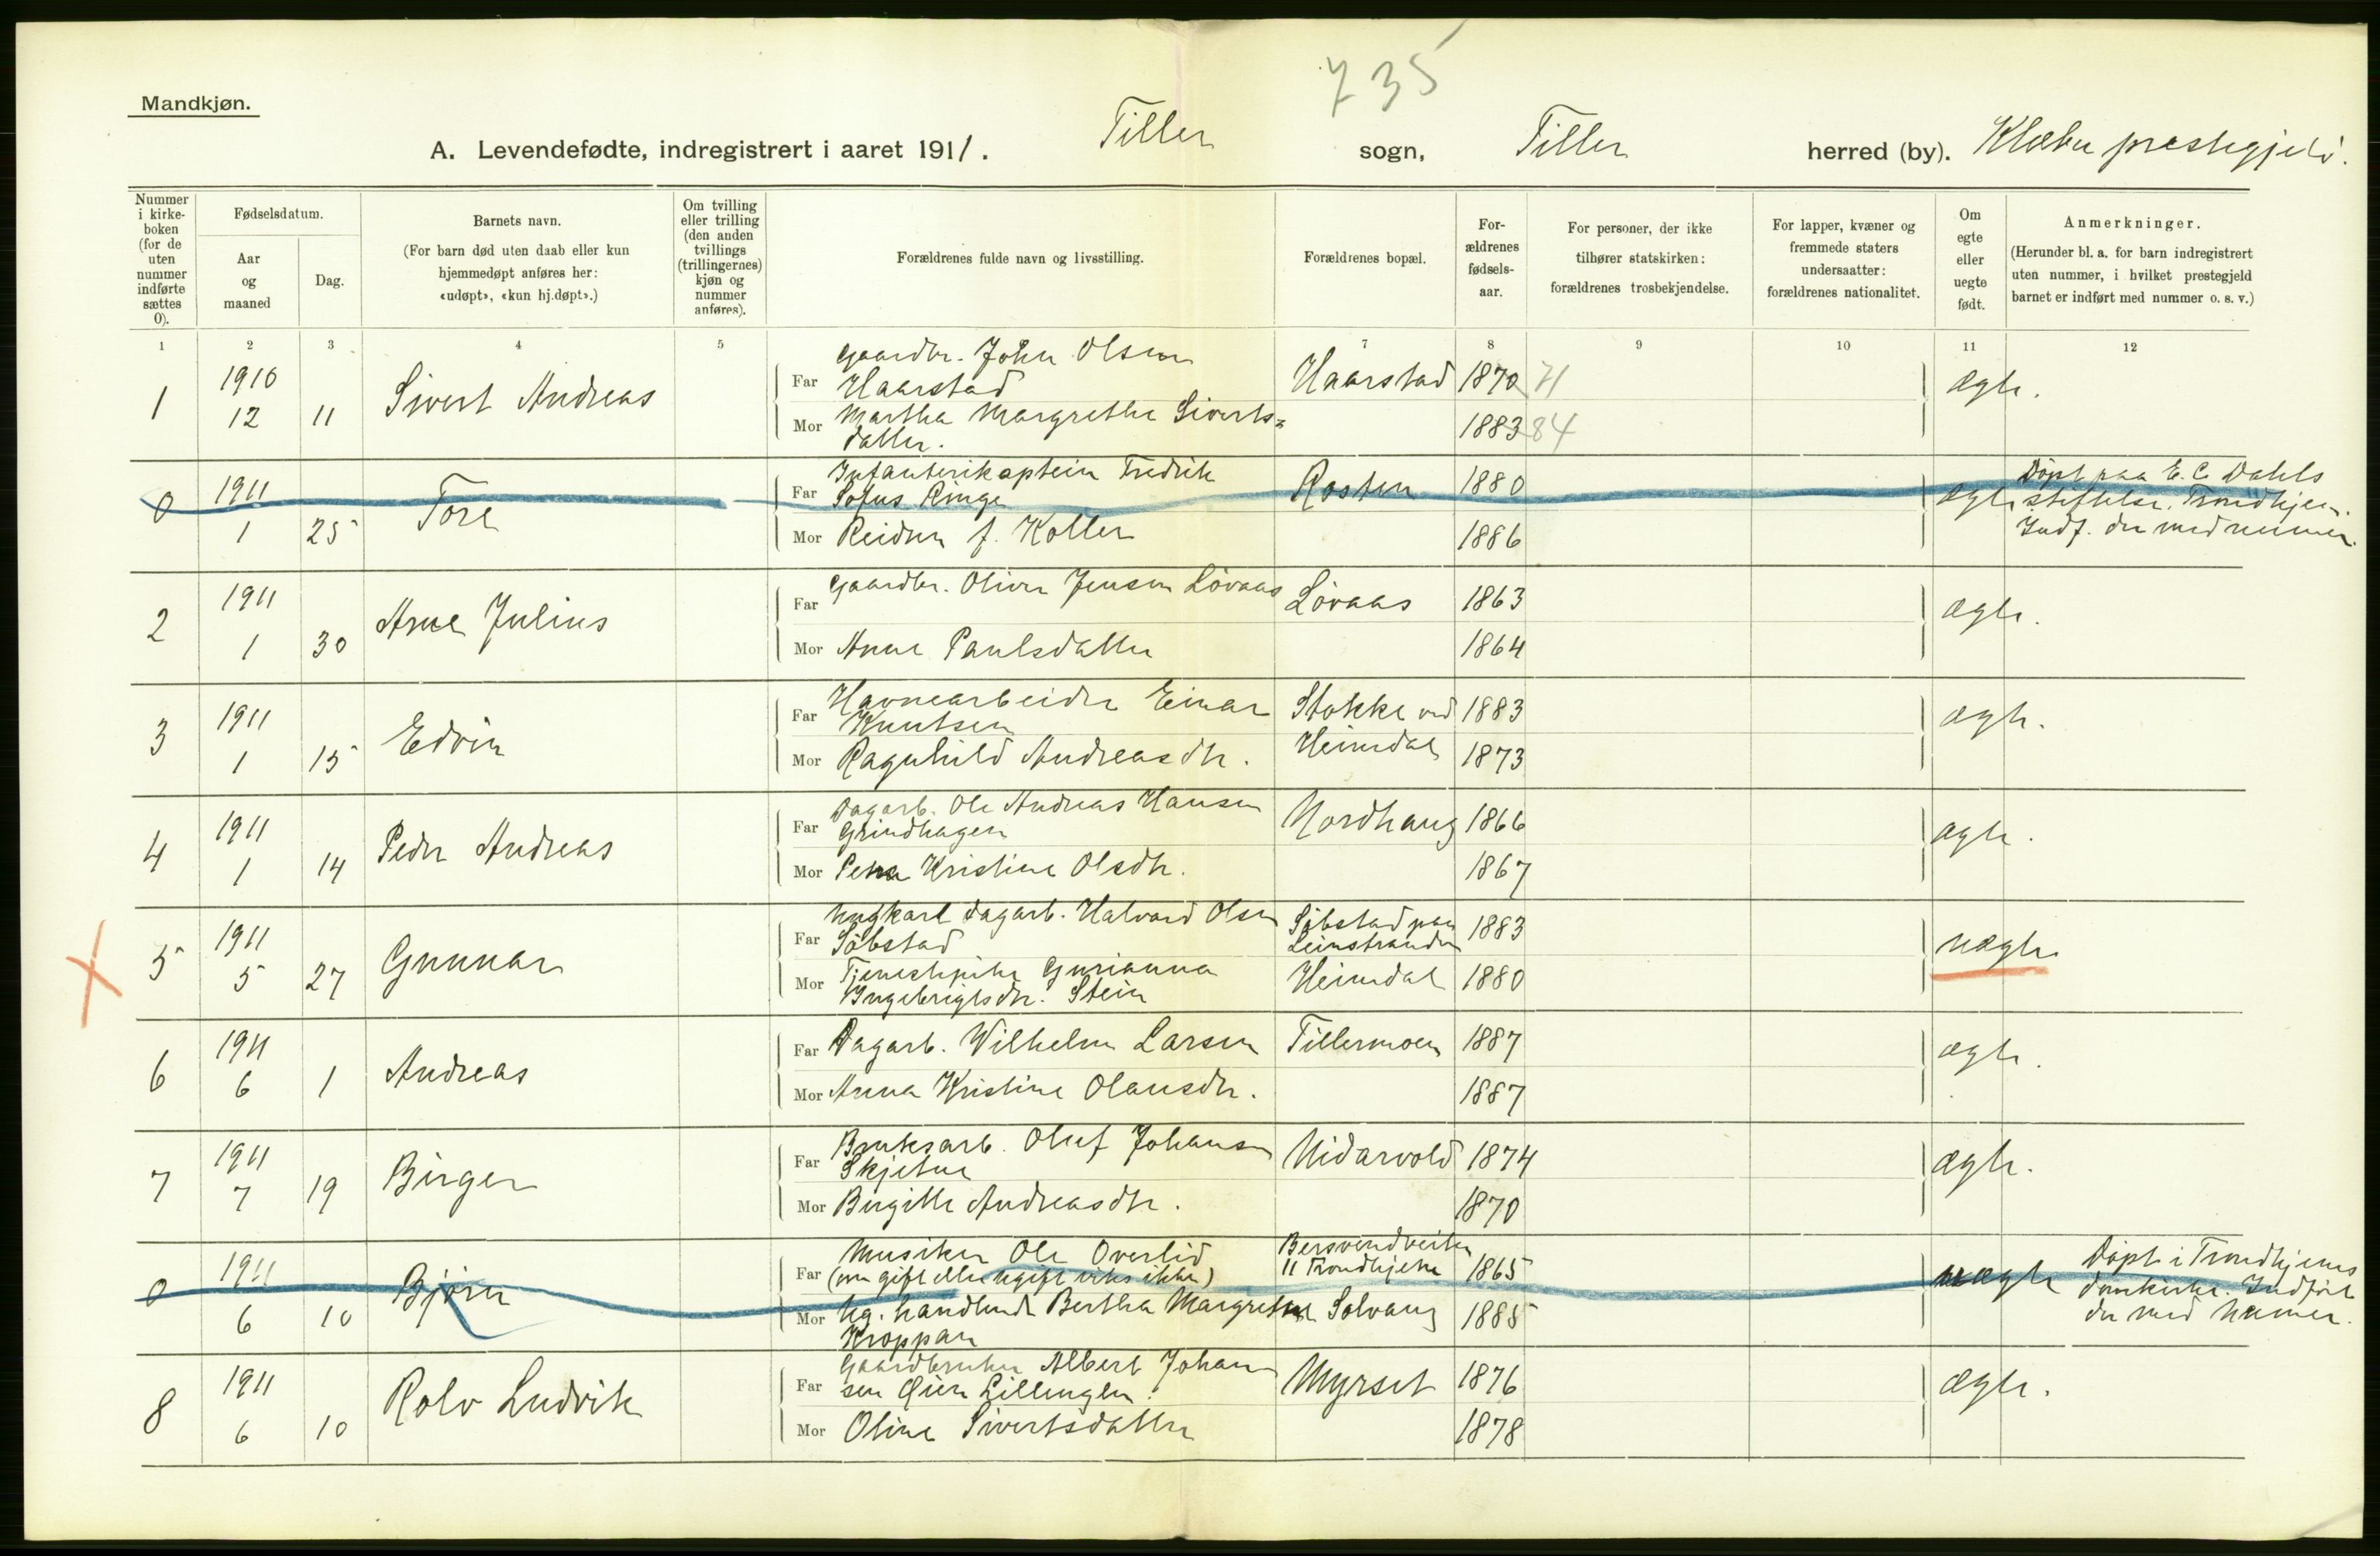 735
Mandkjøn.
A. Levendefødte, indregistrert i aaret 1911. Tiller sogn, Tiller herred (by). Klæbu prestegjeld.
Nummer i kirke- boken (for de uten nummer indførte sættes 0).
Fødselsdatum.
Aar og maaned
Dag.
Barnets navn.
(For barn død uten daab eller kun hjemmedøpt anføres her: «udøpt», «kun hj.døpt».)
Om tvilling eller trilling (den anden tvillings (trillingernes) kjøn og nummer anføres).
Forældrenes fulde navn og livsstilling.
Forældrenes bopæl.
For- ældrenes fødsels- aar.
For personer, der ikke tilhører statskirken: forældrenes trosbekjendelse.
For lapper, kvæner og fremmede staters undersaatter: forældrenes nationalitet.
Om egte eller uegte født.
Anmerkninger.
(Herunder bl. a. for barn indregistrert uten nummer, i hvilket prestegjeld barnet er indført med nummer o. s. v.)
1 2 3 4 5 7 8 9 10 11 12
1 1910 12 11 Sivert Andreas
Far Gaardbr. John Olsen
Haarstad Haarstad 1870 71 ægte.
Mor Martha Margrethe Siverts-
datter. 1883 84
0 1911 1 25 Tore
Far Infanterikaptein Fredrik
Sofus Ringe Rosten 1880 ægte
Døpt paa E. C. Dahls
stiftelse, Trondhjem.
Indf. der med nummer.
Mor Reidun f. Koller 1886
2 1911 1 30 Arne Julius
Far Gaardbr. Oliver Jensen Løvaas Løvaas 1863 ægte.
Mor Anne Paulsdatter 1864
3 1911 1 15 Edvin
Far Havnearbeider Einar
Knutsen Stokke ved
Heimdal 1883 ægte.
Mor Ragnhild Andreasdtr. 1873
4 1911 1 14 Peder Andreas
Far Dagarb. Ole Andreas Hansen
Grindhagen Nordhaug 1866 ægte.
Mor Petra Kristine Olsdtr. 1867
5 1911 5 27 Gunnar
Far Ungkarl dagarb. Halvard Olsen
Søbstad Søbstad paa
Leinstranden 1883 uægte
Mor Tjenestepike Gurianna
Ingebrigtsdtr. Stein Heimdal 1880
6 1911 6 1 Andreas
Far Dagarb. Wilhelm Larsen Tillermoen 1887 ægte.
Mor Anna Kristine Olausdtr. 1887
7 1911 7 19 Birger
Far Bruksarb. Oluf Johansen
Skjetne Nidarvold 1874 ægte.
Mor Birgitte Andreasdtr. 1870
0 1911 6 10 Bjørn
Far Musiker Ole Overlid
(om gift eller ugift vites ikke) Bersvendveiten
11 Trondhjem 1865 uægte
Døpt i Trondhjems
domkirke. Indført
der med nummer.
Mor Ug. handlende Bertha Margrethe
Kroppan Solvang 1885
8 1911 6 10 Rolv Ludvik
Far Gaardbruker Albert Johan-
sen Øien Lilleuglen. Myrset 1876 ægte.
Mor Oline Sivertsdatter 1878